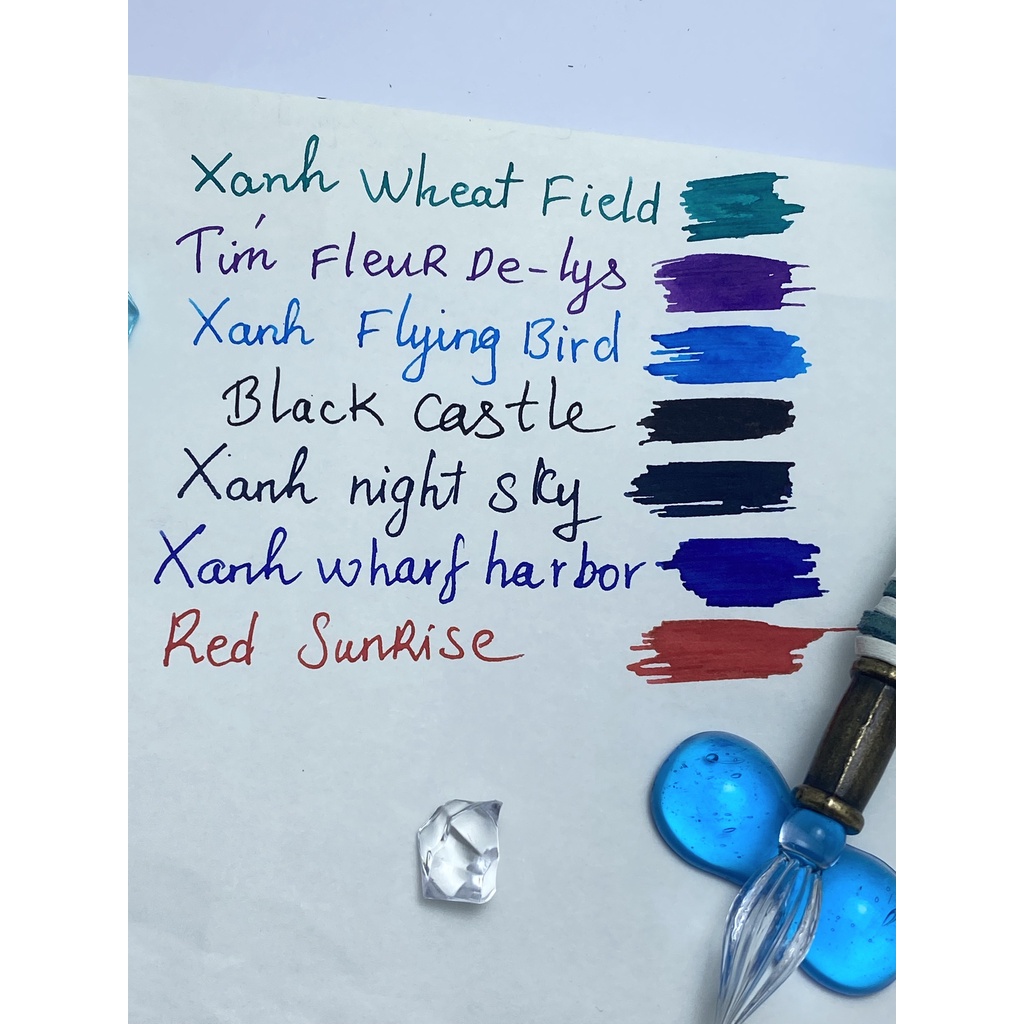 Xanh Wheat Field
Tím Fleur De-lys
Xanh Flying Bird
Black Castle
Xanh night sky
Xanh wharf harbor
Red Sunrise